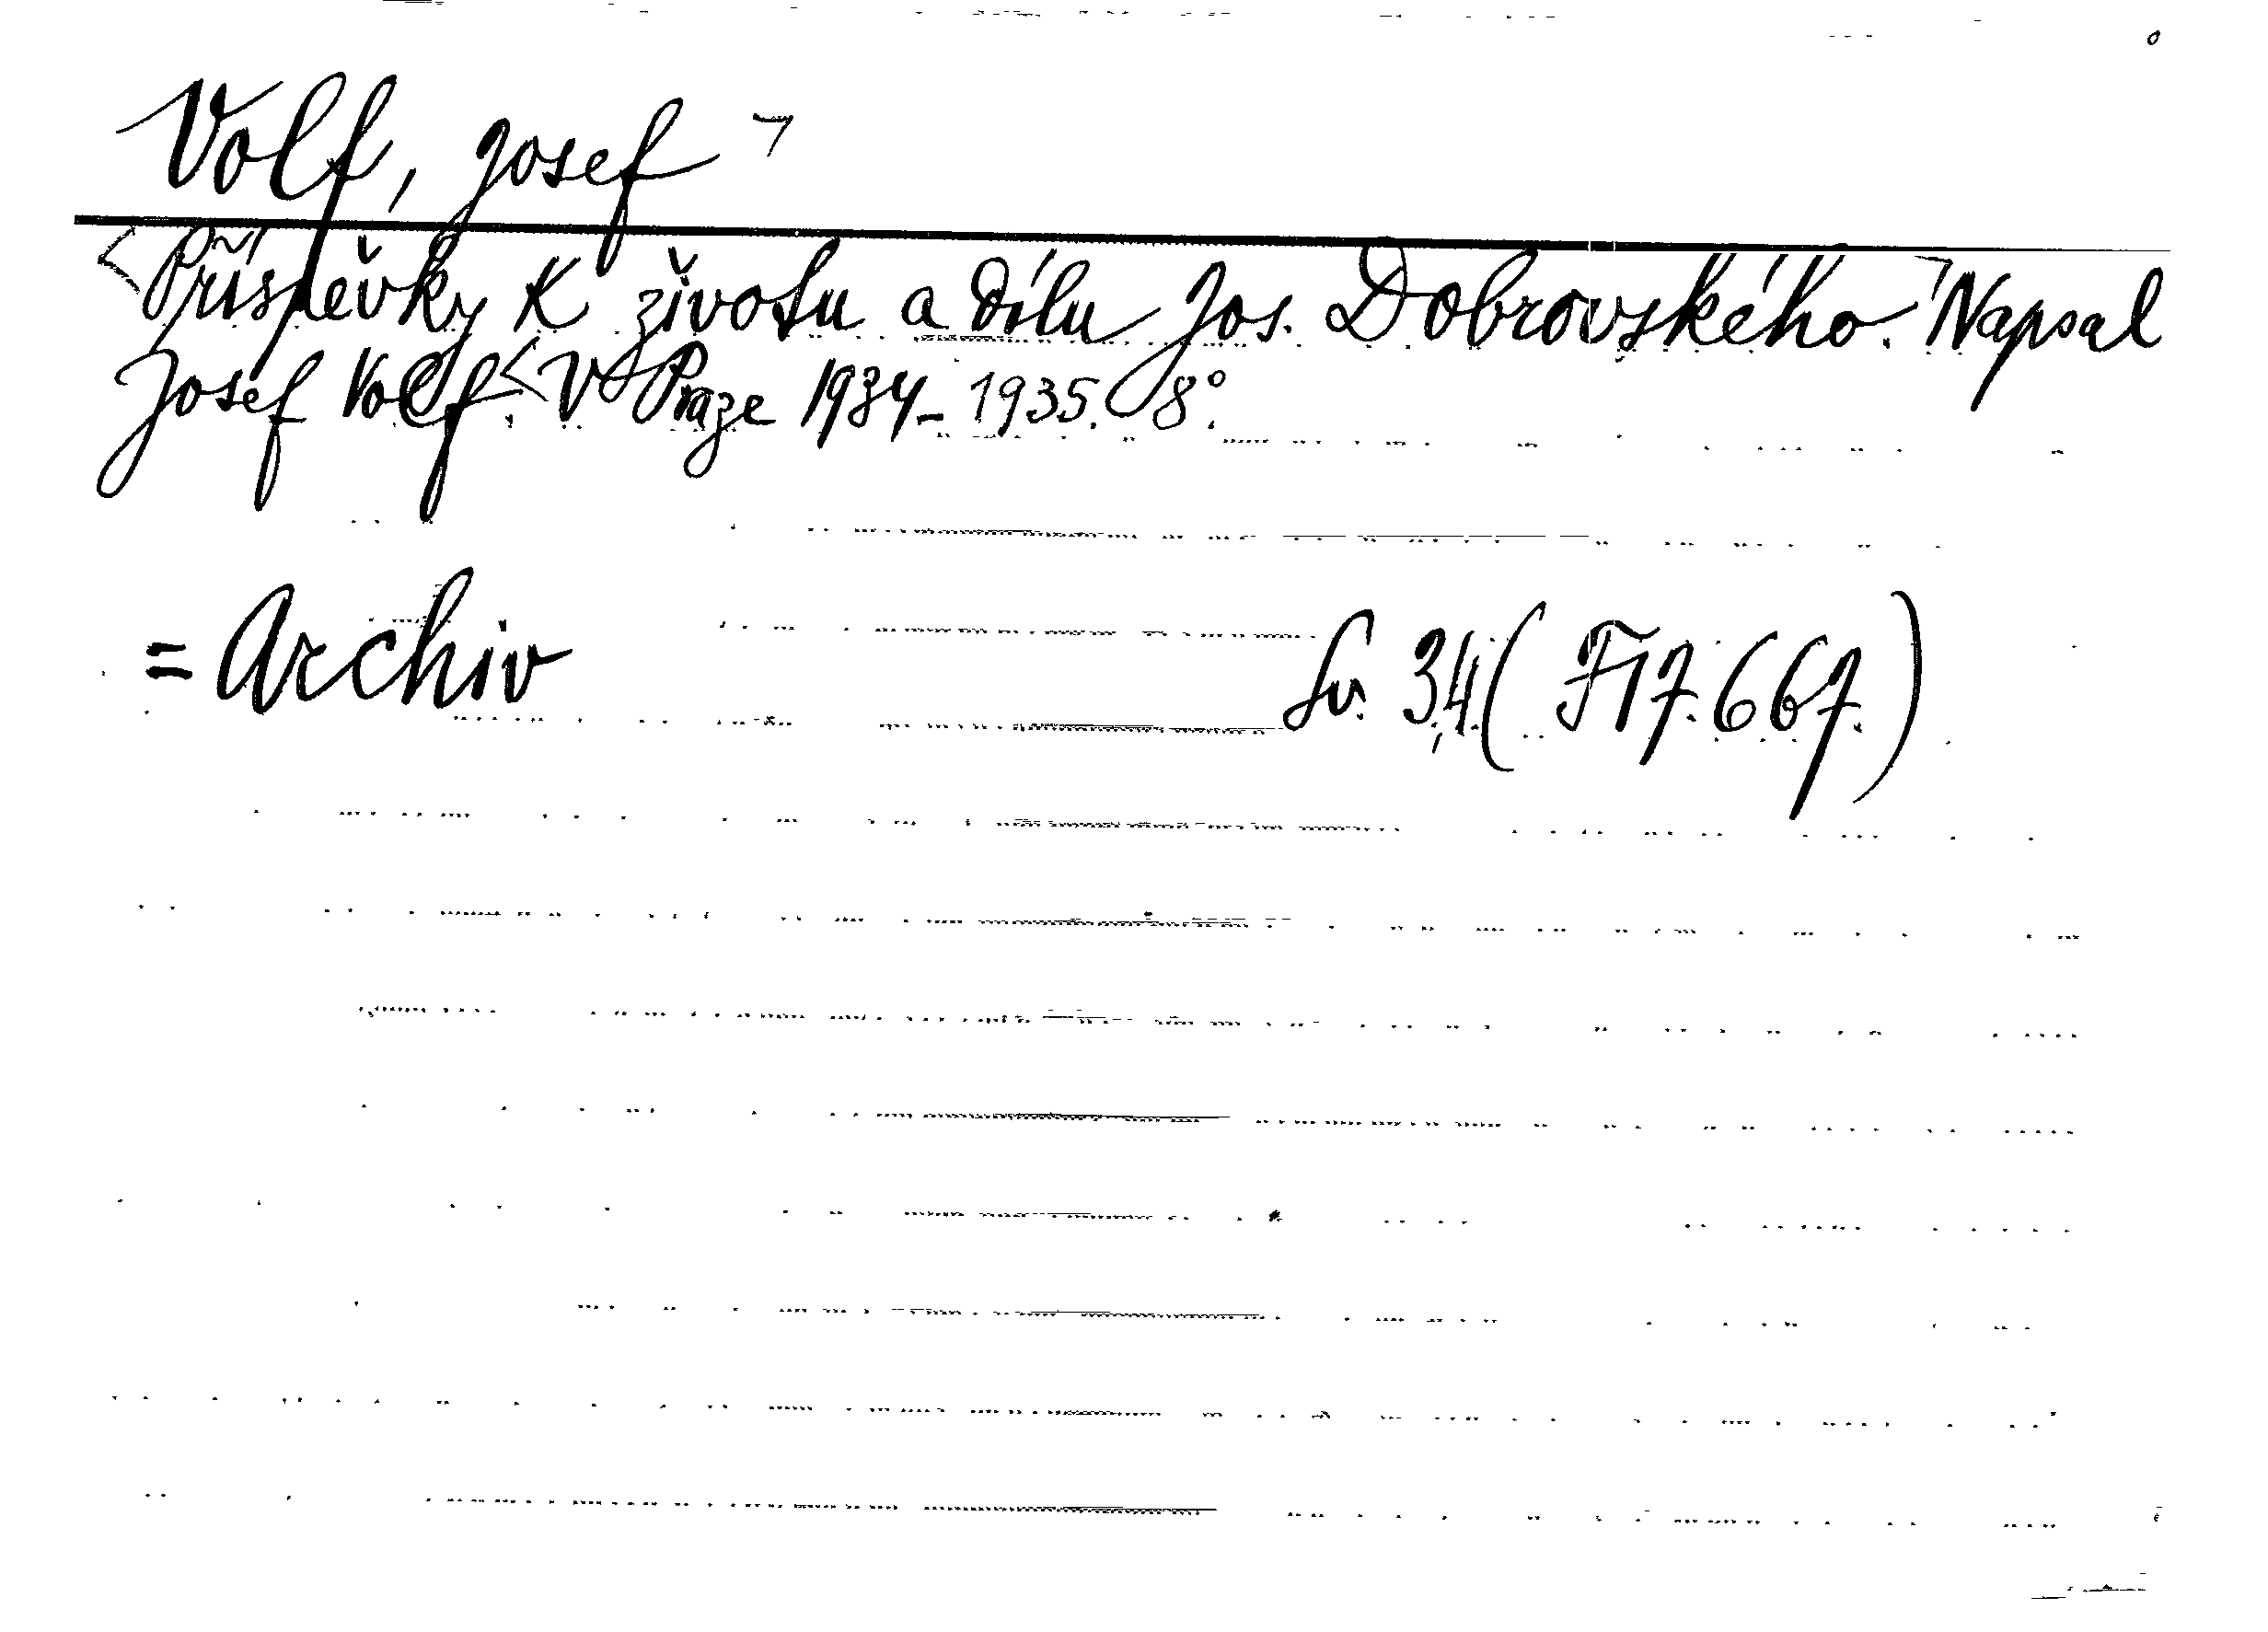 Volf, Josef ¬
<Příspěvky k životu a dílu Jos. Dobrovského.¬ Napsal
Josef Volf. <V Praze 1934-1935. 8°.
= Archiv Sv. 3,4. (F 17.667.)